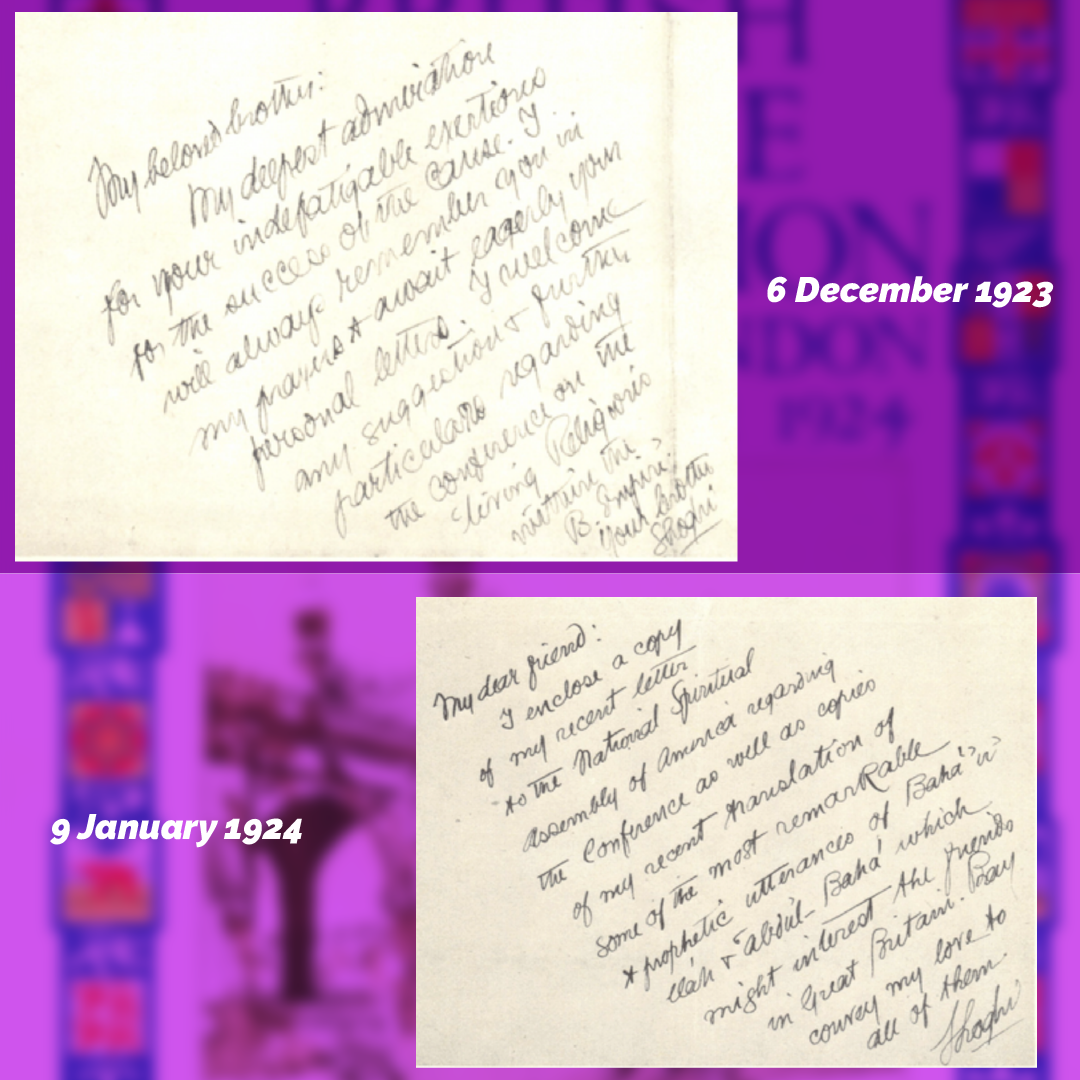 My beloved brother:
My deepest admiration
for your indefatigable exertions
for the success of the Cause. I
will always remember you in
my prayers & await eagerly your
personal letters. I welcome
any suggestion & further
particulars regarding
the conference on the
"living Religions
within the
B. Empire."
Your brother
Shoghi
H
E
ION
NDON
1924
6 December 1923
9 January 1924
My dear friend:
I enclose a copy
of my recent letter
to the National Spiritual
Assembly of America regarding
the Conference as well as copies
of my recent translation of
some of the most remarkable
& prophetic utterances of Bahá'u'
lláh & 'Abdul-Bahá which
might interest the friends
in Great Britain. Pray
convey my love to
all of them.
Shoghi